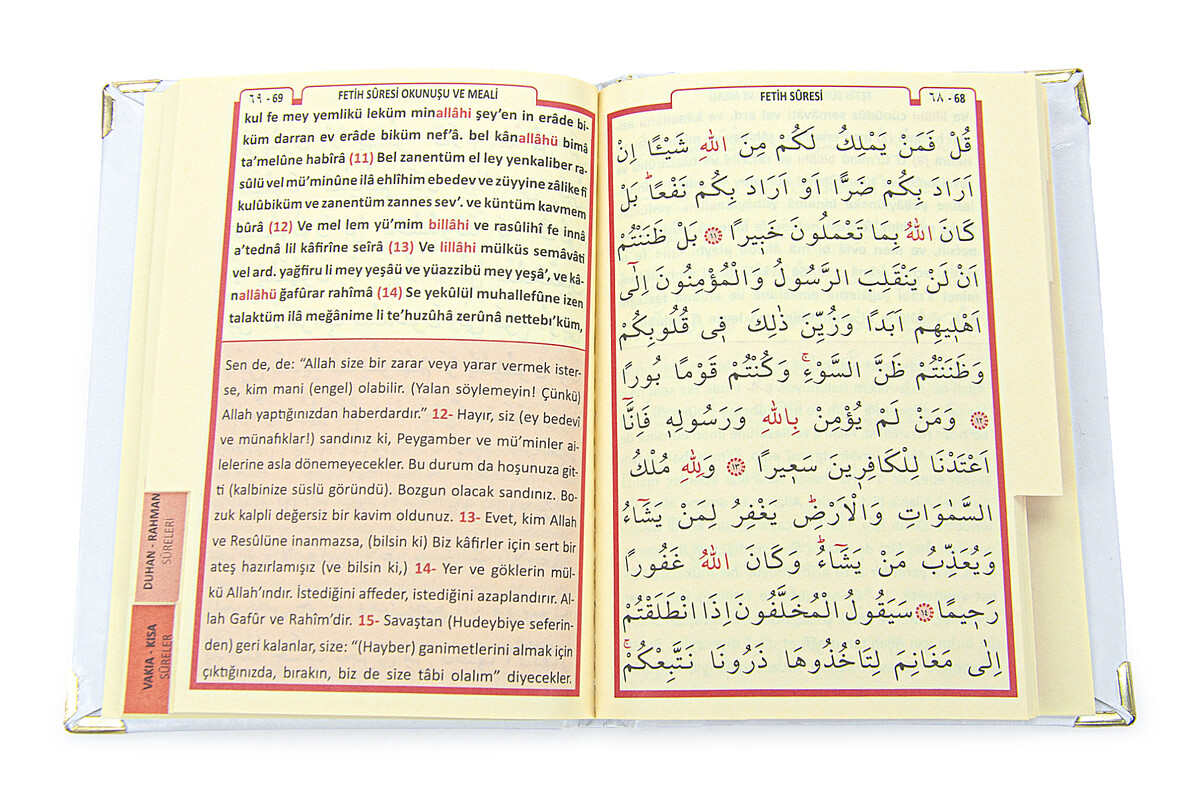 ٦٩ - 69
FETİH SÛRESİ OKUNUŞU VE MEALİ
kul fe mey yemlikü leküm minallâhi şey'en in erâde bi-
küm darran ev erâde biküm nef'â. bel kânallâhü bimâ
ta'melûne habîrâ (11) Bel zanentüm el ley yenkaliber ra-
sûlü vel mü'minûne ilâ ehlîhim ebedev ve züyyine zâlike fî
kulûbiküm ve zanentüm zannes sev'. ve küntüm kavmem
bûrâ (12) Ve mel lem yü'mim billâhi ve rasûlihî fe innâ
a'tednâ lil kâfirîne seîrâ (13) Ve lillâhi mülküs semâvâti
vel ard. yağfiru li mey yeşâü ve yüazzibü mey yeşâ', ve kâ-
nallâhü ğafûrar rahîmâ (14) Se yekûlül muhallefûne izen
talaktüm ilâ meğânime li te'huzûhâ zerûnâ nettebı'küm,
Sen de, de: “Allah size bir zarar veya yarar vermek ister-
se, kim mani (engel) olabilir. (Yalan söylemeyin! Çünkü)
Allah yaptığınızdan haberdardır.” 12- Hayır, siz (ey bedevî
ve münafıklar!) sandınız ki, Peygamber ve mü'minler ai-
lelerine asla dönemeyecekler. Bu durum da hoşunuza git-
ti (kalbinize süslü göründü). Bozgun olacak sandınız. Bo-
zuk kalpli değersiz bir kavim oldunuz. 13- Evet, kim Allah
ve Resûlüne inanmazsa, (bilsin ki) Biz kâfirler için sert bir
ateş hazırlamışız (ve bilsin ki,) 14- Yer ve göklerin mül-
kü Allah'ındır. İstediğini affeder, istediğini azaplandırır. Al-
lah Gafûr ve Rahîm'dir. 15- Savaştan (Hudeybiye seferin-
den) geri kalanlar, size: “(Hayber) ganimetlerini almak için
çıktığınızda, bırakın, biz de size tâbi olalım” diyecekler.
DUHAN - RAHMAN
SÛRELERİ
VAKIA - KISA
SÛRELER
FETİH SÛRESİ
٦٨ - 68
قُلْ فَمَنْ يَمْلِكُ لَكُمْ مِنَ اللّٰهِ شَيْـًٔا اِنْ
اَرَادَ بِكُمْ ضَرًّا اَوْ اَرَادَ بِكُمْ نَفْعًاۜ بَلْ
كَانَ اللّٰهُ بِمَا تَعْمَلُونَ خَب۪يرًا ﴿١١﴾ بَلْ ظَنَنْتُمْ
اَنْ لَنْ يَنْقَلِبَ الرَّسُولُ وَالْمُؤْمِنُونَ اِلٰٓى
اَهْل۪يهِمْ اَبَدًا وَزُيِّنَ ذٰلِكَ ف۪ي قُلُوبِكُمْ
وَظَنَنْتُمْ ظَنَّ السَّوْءِۚ وَكُنْتُمْ قَوْمًا بُورًا
﴿١٢﴾ وَمَنْ لَمْ يُؤْمِنْ بِاللّٰهِ وَرَسُولِه۪ فَاِنَّٓا
اَعْتَدْنَا لِلْكَافِر۪ينَ سَع۪يرًا ﴿١٣﴾ وَلِلّٰهِ مُلْكُ
السَّمٰوَاتِ وَالْاَرْضِۜ يَغْفِرُ لِمَنْ يَشَٓاءُ
وَيُعَذِّبُ مَنْ يَشَٓاءُۜ وَكَانَ اللّٰهُ غَفُورًا
رَح۪يمًا ﴿١٤﴾ سَيَقُولُ الْمُخَلَّفُونَ اِذَا انْطَلَقْتُمْ
اِلٰى مَغَانِمَ لِتَأْخُذُوهَا ذَرُونَا نَتَّبِعْكُمْۚ